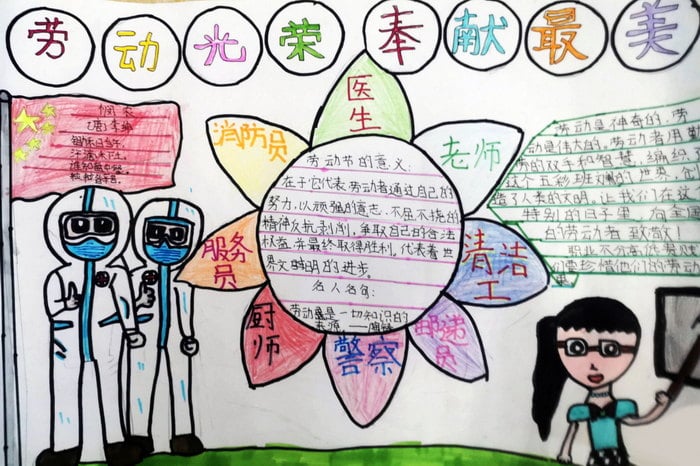 劳动光荣奉献最美
悯农
(唐)李绅
锄禾日当午,
汗滴禾下土。
谁知盘中餐,
粒粒皆辛苦。
医生
消防员
老师
服务员
清洁工
厨师
警察
邮递员
劳动节的意义:
在于它代表劳动者通过自己的
努力,以顽强的意志、不屈不挠的
精神反抗剥削,争取自己的合法
权益,并最终取得胜利,代表着世
界文明的进步。
名人名句:
劳动是一切知识的
来源
劳动是神奇的,劳
动是伟大的。劳动者用勤
劳的双手和智慧,编织
这个五彩班斓的世界,创
造了人类的文明。让我们在这
特别的日子里,向全
的劳动者致敬!
职业不分高低贵贱
们要珍惜他们的劳动